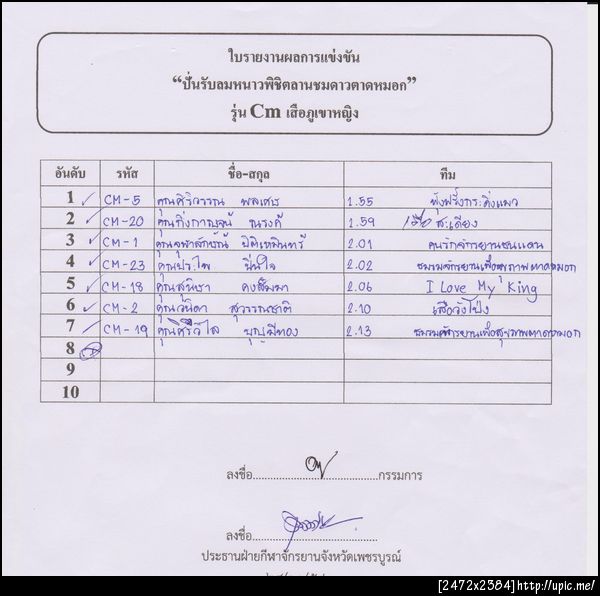 ใบรายงานผลการแข่งขัน
“ปั่นรับลมหนาวพิชิตลานชมดาวตาดหมอก”
รุ่น Cm เสือภูเขาหญิง
อันดับ รหัส ชื่อ-สกุล ทีม
1 CM-5 คุณศิริวรรณ พลเศษ 1.55
2 CM-20 คุณกิ่งกาญจน์ ณรงค์ 1.59 เรือ สะเดียง
3 CM-1 คุณจุฬาลักษณ์ 2.01 คนรักจักรยานชนแดน
4 CM-23 2.02 ชมรมจักรยานเพื่อสุขภาพตาดหมอก
5 CM-18 คุณสุนิษา คงสัมมา 2.06 I Love My King
6 CM-2 คุณวนิดา สุวรรณชาติ 2.10 เสือวังโป่ง
7 CM-19 คุณศิริวิไล บุญมีทอง 2.13 ชมรมจักรยานเพื่อสุขภาพตาดหมอก
8
9
10
ลงชื่อ..............................กรรมการ
ลงชื่อ..............................
ประธานฝ่ายกีฬาจักรยานจังหวัดเพชรบูรณ์
[2472x2384]http://upic.me/